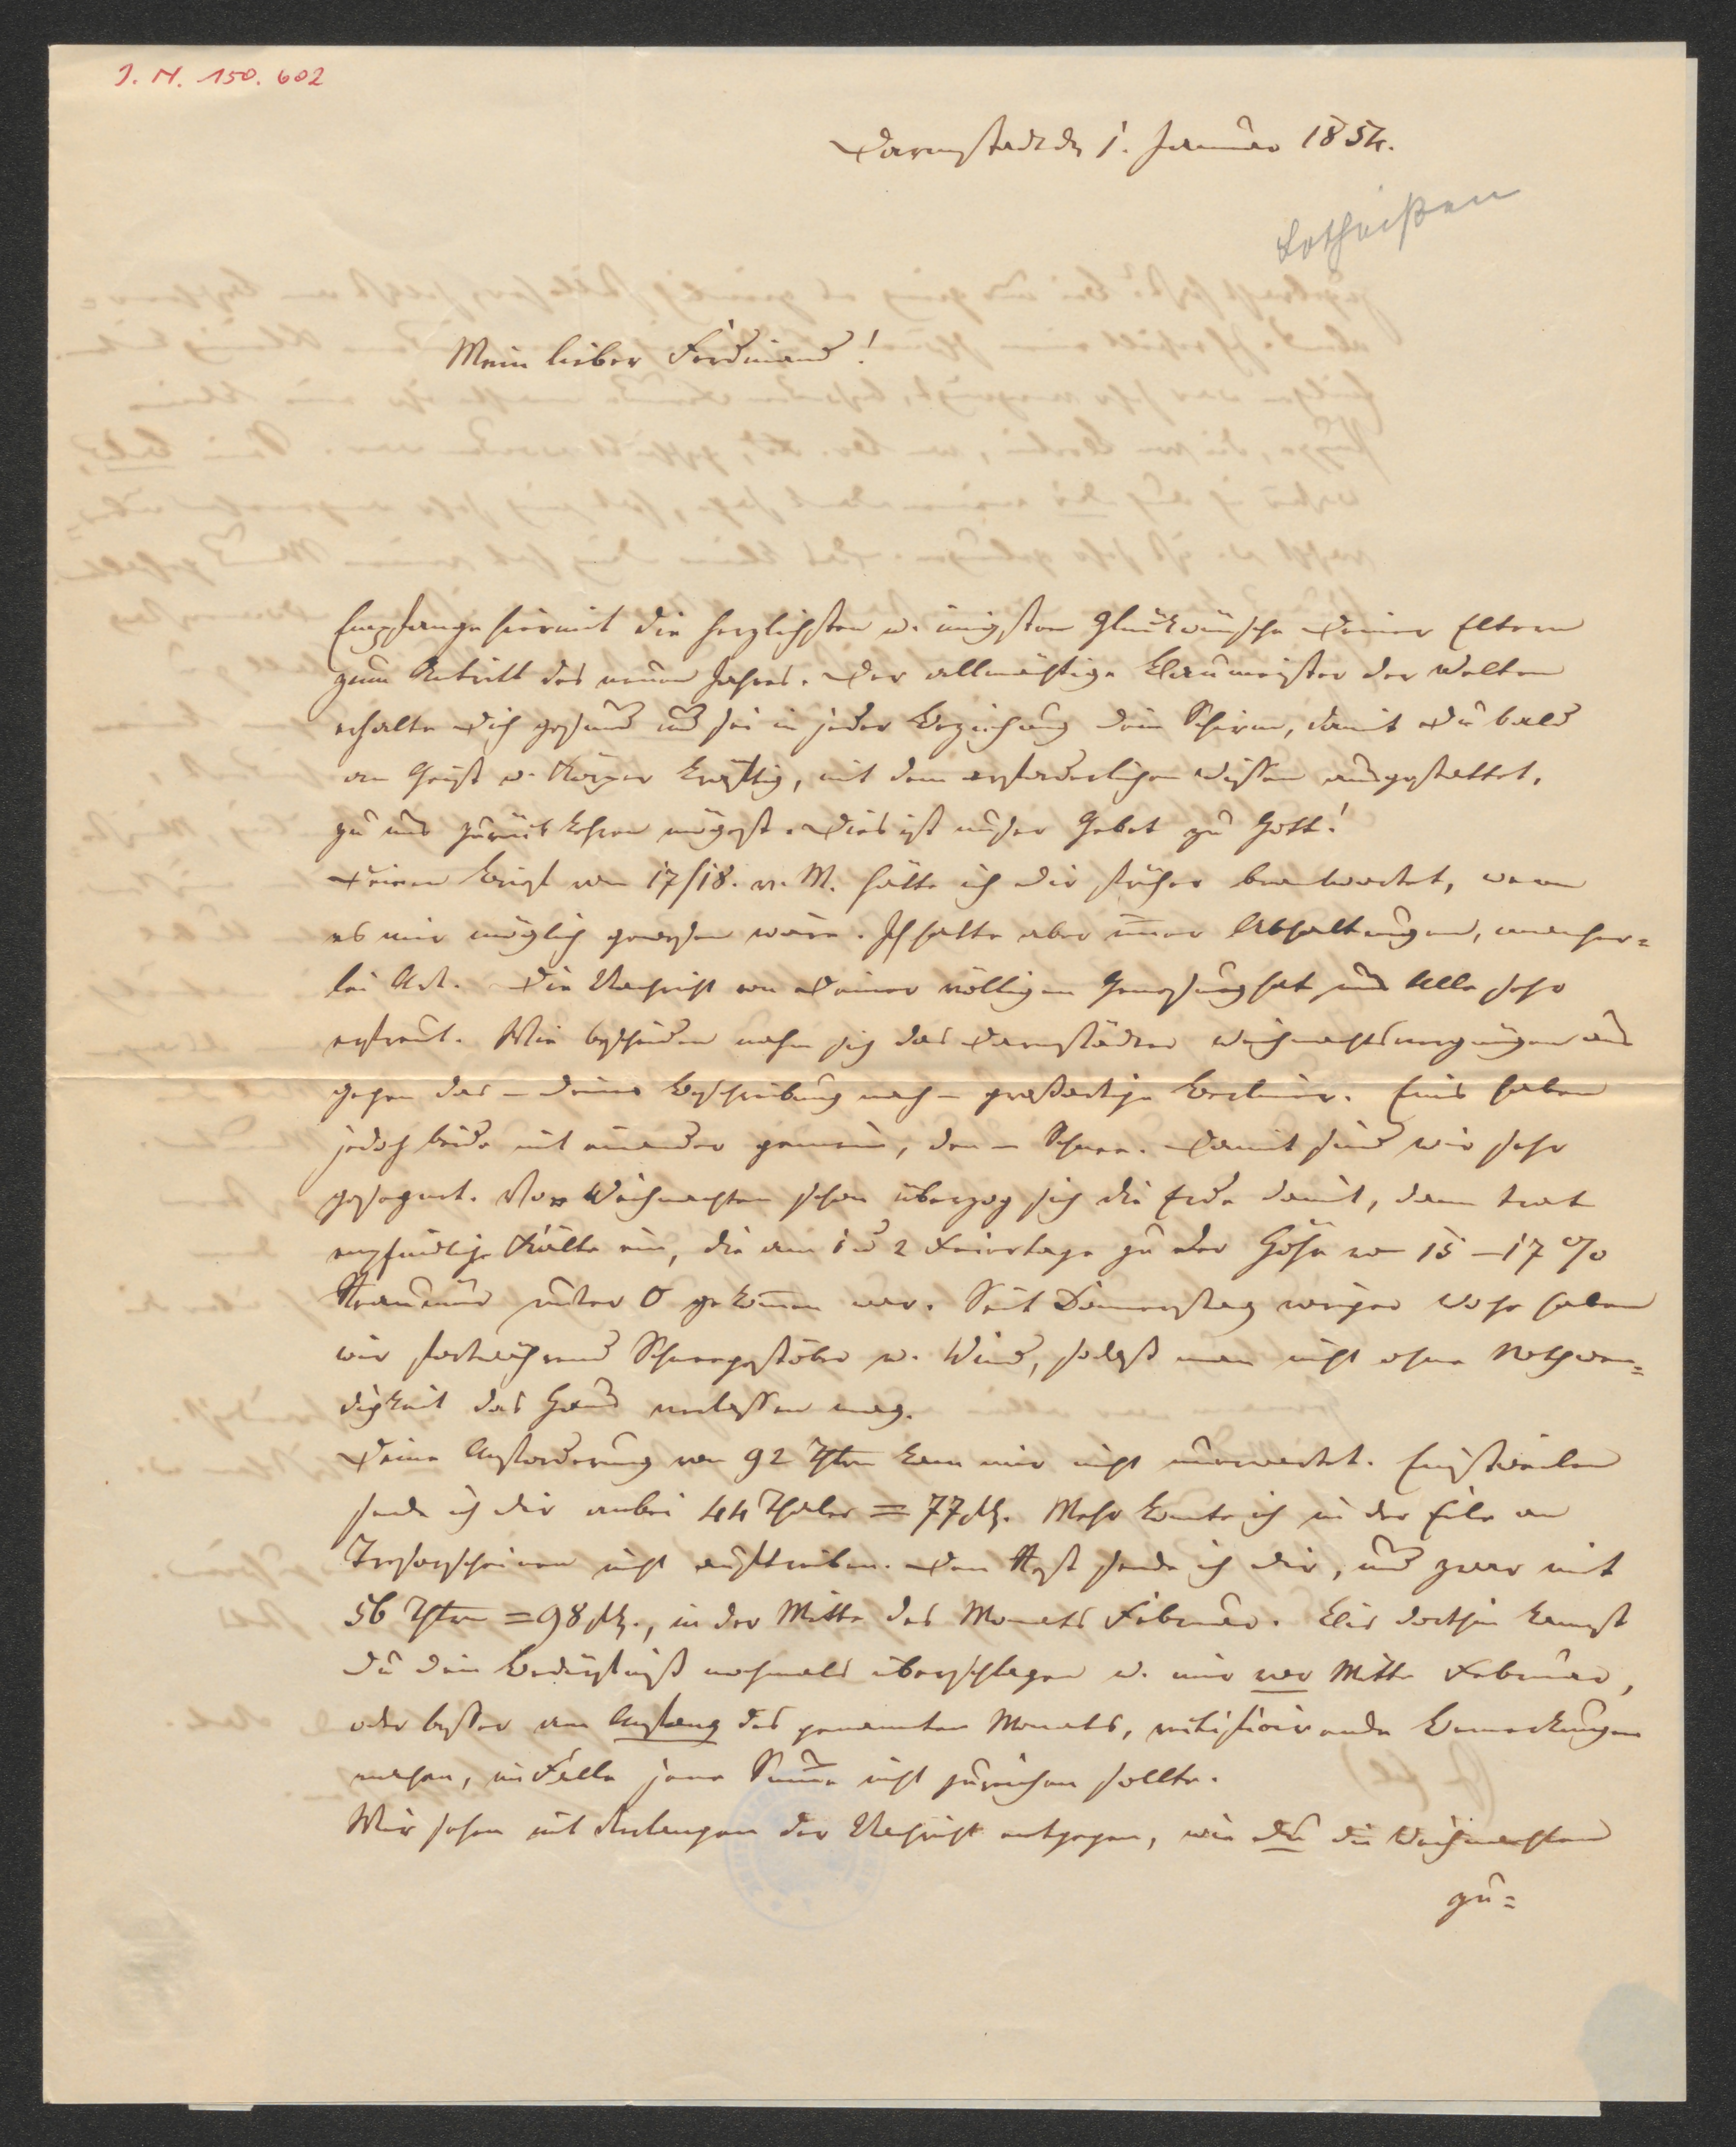 J. N. 150.602
Darmstadt d. 1. Januar 1854.
Lotheißen
Mein lieber Ferdinand!
Empfange hiermit die herzlichsten u. innigsten Glückwünsche Deiner Eltern
zum Antritt des neuen Jahres. Der allmächtige Baumeister der Welten
erhalte Dich gesund und sei in jeder Beziehung dein Schirm, damit Du bald
an Geist u. Körper kräftig, mit dem erforderlichen Wissen ausgestattet,
zu uns zurück kehren mögest. Dies ist unser Gebet zu Gott!
Deinen Brief vom 17/18. v. M. hätte ich Dir früher beantwortet, wenn
es mir möglich gewesen wäre. Ich hatte aber immer Abhaltungen, mancher=
lei Art. Die Nachricht von Deiner völligen Genesung hat uns Alle sehr
erfreut. Wie bescheiden nahm sich das Darmstädter Weihnachtsvergnügen aus
gegen das – Deiner Beschreibung nach – großartige Berliner. Eins haben
jedoch beide mit einander gemein, den – Schnee. Damit sind wir sehr
gesegnet. Vor Weihnachten schon überzog sich die Erde damit, dann trat
empfindliche Kälte ein, die am 1 u 2 Feiertage zu der Höhe von 15 – 17 %
Reaumur unter 0 gekommen war. Seit Donnerstag voriger Woche haben
wir fortwährend Schneegestöber u. Wind, sodaß man nicht ohne Nothwen=
digkeit das Haus verlassen mag.
Deine Anforderung von 92 Thlrn kam mir nicht unerwartet. Einstweilen
sende ich dir anbei 44 Thaler = 77 fl. Mehr konnte ich in der Eile an
Tresorscheinen nicht auftreiben. Den Rest sende ich dir, und zwar mit
56 Thlrn = 98 fl., in der Mitte des Monats Februar. Bis dorthin kannst
du dein Bedürfniß nochmals überschlagen u. mir vor Mitte Februar,
oder besser am Anfang des genannten Monats, rectificirende Bemerkungen
machen, im Falle jene Summe nicht zureichen sollte.
Wir sehen mit Verlangen der Nachricht entgegen, wie du die Weihnachten
zu=